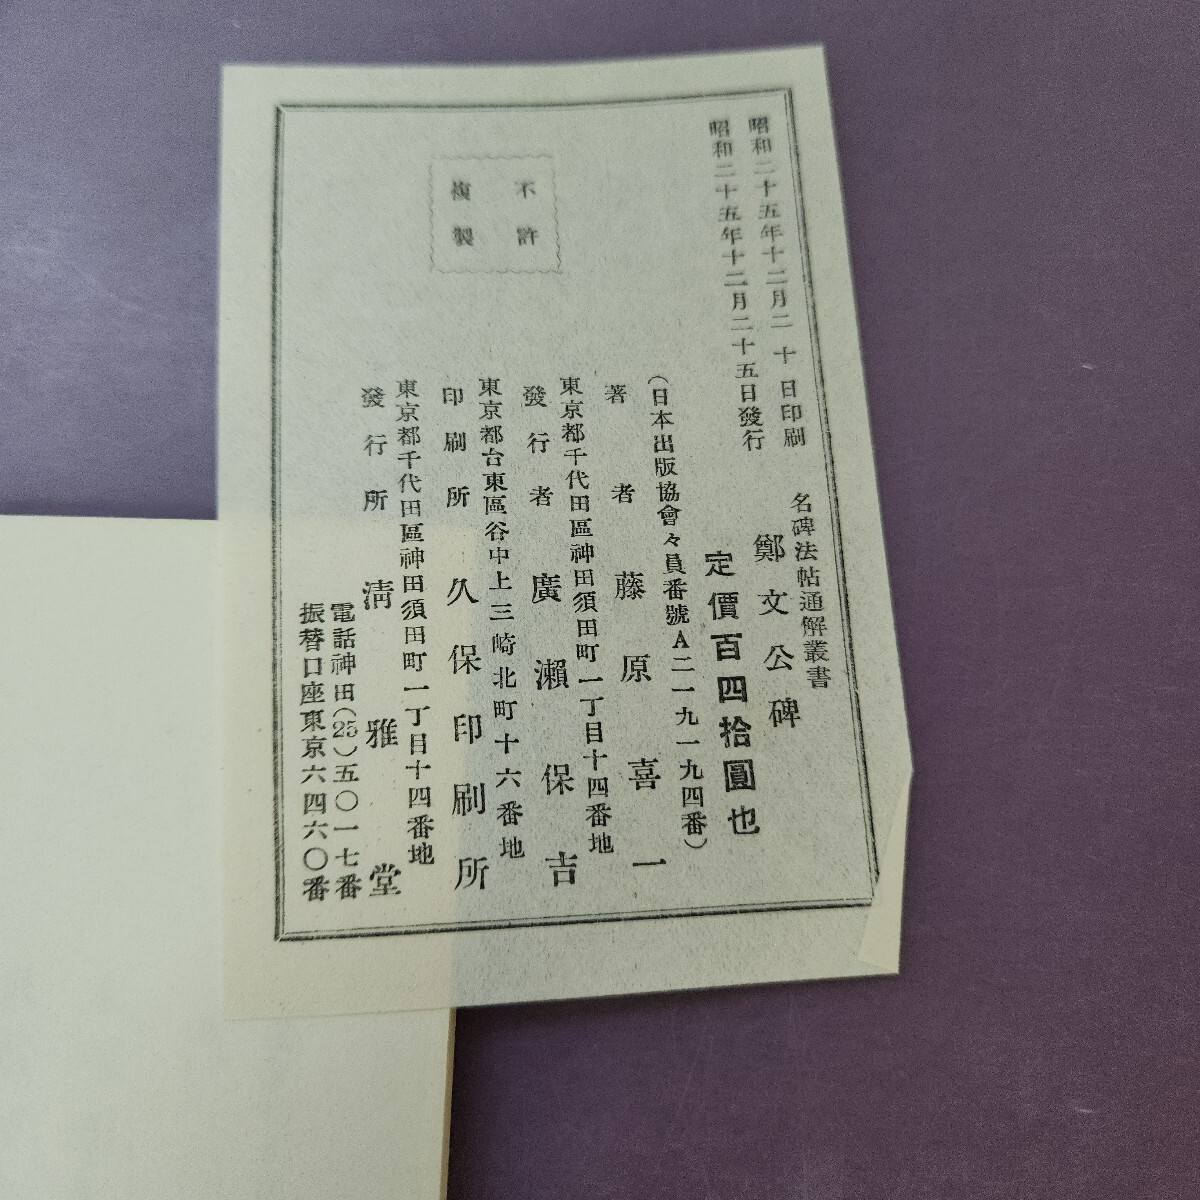 昭和二十五年十二月二十日印刷
昭和二十五年十二月二十五日發行
不許
複製
名碑法帖通解叢書
鄭文公碑
定價百四拾圓也
(日本出版協會々員番號A二一九一九四番)
著者 藤原喜一
東京都千代田區神田須田町一丁目十四番地
發行者 廣瀨保吉
東京都台東區谷中上三崎北町十六番地
印刷所 久保印刷所
東京都千代田區神田須田町一丁目十四番地
發行所 淸雅堂
電話神田(25)五〇一七番
振替口座東京六四六〇番